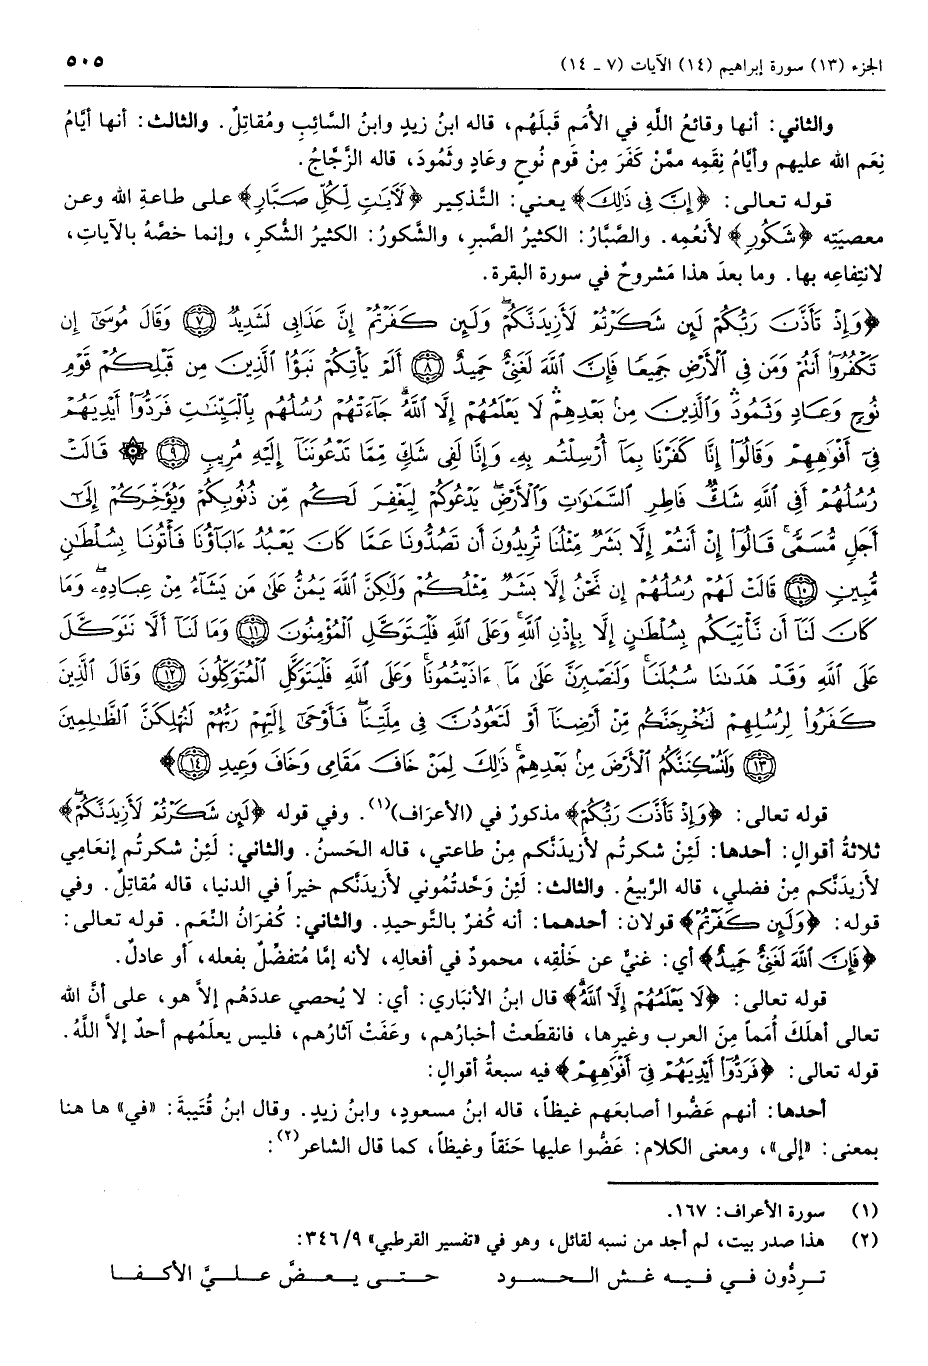 الجزء (١٣) سورة إبراهيم (١٤) الآيات (٧ ـ ١٤) ٥٠٥
والثاني: أنها وقائعُ اللَّهِ في الأمَمِ قبلَهُم، قاله ابنُ زيدٍ وابنُ السَّائِبِ ومُقاتِلٌ. والثالث: أنها أيَّامُ
نِعَمِ الله عليهم وأيَّامُ نِقَمِه ممَّنْ كَفَرَ مِنْ قوم نُوحٍ وعَادٍ وثَمُودَ، قاله الزَّجَّاجُ.
قوله تعالى: ﴿إِنَّ فِي ذَلِكَ﴾ يعني: التَّذكِيرِ ﴿لَآيَاتٍ لِكُلِّ صَبَّارٍ﴾ على طاعةِ الله وعن
معصيَتِه ﴿شَكُورٍ﴾ لأنعُمِه. والصَّبَّارُ: الكثيرُ الصَّبرِ، والشَّكورُ: الكثيرُ الشُّكرِ، وإنما خصَّهُ بالآياتِ،
لانتِفاعِه بها. وما بعدَ هذا مَشروحٌ في سورة البقرة.
﴿وَإِذْ تَأَذَّنَ رَبُّكُمْ لَئِن شَكَرْتُمْ لَأَزِيدَنَّكُمْ وَلَئِن كَفَرْتُمْ إِنَّ عَذَابِي لَشَدِيدٌ ﴿٧﴾ وَقَالَ مُوسَىٰ إِن
تَكْفُرُوٓا۟ أَنتُمْ وَمَن فِي ٱلْأَرْضِ جَمِيعًا فَإِنَّ ٱللَّهَ لَغَنِيٌّ حَمِيدٌ ﴿٨﴾ أَلَمْ يَأْتِكُمْ نَبَؤُا۟ ٱلَّذِينَ مِن قَبْلِكُمْ قَوْمِ
نُوحٍ وَعَادٍ وَثَمُودَ وَٱلَّذِينَ مِنۢ بَعْدِهِمْ لَا يَعْلَمُهُمْ إِلَّا ٱللَّهُ جَآءَتْهُمْ رُسُلُهُم بِٱلْبَيِّنَٰتِ فَرَدُّوٓا۟ أَيْدِيَهُمْ
فِىٓ أَفْوَٰهِهِمْ وَقَالُوٓا۟ إِنَّا كَفَرْنَا بِمَآ أُرْسِلْتُم بِهِۦ وَإِنَّا لَفِى شَكٍّ مِّمَّا تَدْعُونَنَآ إِلَيْهِ مُرِيبٍ ﴿٩﴾ ۞ قَالَتْ
رُسُلُهُمْ أَفِى ٱللَّهِ شَكٌّ فَاطِرِ ٱلسَّمَٰوَٰتِ وَٱلْأَرْضِ يَدْعُوكُمْ لِيَغْفِرَ لَكُم مِّن ذُنُوبِكُمْ وَيُؤَخِّرَكُمْ إِلَىٰٓ
أَجَلٍ مُّسَمًّى قَالُوٓا۟ إِنْ أَنتُمْ إِلَّا بَشَرٌ مِّثْلُنَا تُرِيدُونَ أَن تَصُدُّونَا عَمَّا كَانَ يَعْبُدُ ءَابَآؤُنَا فَأْتُونَا بِسُلْطَٰنٍ
مُّبِينٍ ﴿١٠﴾ قَالَتْ لَهُمْ رُسُلُهُمْ إِن نَّحْنُ إِلَّا بَشَرٌ مِّثْلُكُمْ وَلَٰكِنَّ ٱللَّهَ يَمُنُّ عَلَىٰ مَن يَشَآءُ مِنْ عِبَادِهِۦ وَمَا
كَانَ لَنَآ أَن نَّأْتِيَكُم بِسُلْطَٰنٍ إِلَّا بِإِذْنِ ٱللَّهِ وَعَلَى ٱللَّهِ فَلْيَتَوَكَّلِ ٱلْمُؤْمِنُونَ ﴿١١﴾ وَمَا لَنَآ أَلَّا نَتَوَكَّلَ
عَلَى ٱللَّهِ وَقَدْ هَدَىٰنَا سُبُلَنَا وَلَنَصْبِرَنَّ عَلَىٰ مَآ ءَاذَيْتُمُونَا وَعَلَى ٱللَّهِ فَلْيَتَوَكَّلِ ٱلْمُتَوَكِّلُونَ ﴿١٢﴾ وَقَالَ ٱلَّذِينَ
كَفَرُوا۟ لِرُسُلِهِمْ لَنُخْرِجَنَّكُم مِّنْ أَرْضِنَآ أَوْ لَتَعُودُنَّ فِى مِلَّتِنَا فَأَوْحَىٰٓ إِلَيْهِمْ رَبُّهُمْ لَنُهْلِكَنَّ ٱلظَّٰلِمِينَ
﴿١٣﴾ وَلَنُسْكِنَنَّكُمُ ٱلْأَرْضَ مِنۢ بَعْدِهِمْ ذَٰلِكَ لِمَنْ خَافَ مَقَامِى وَخَافَ وَعِيدِ ﴿١٤﴾﴾
قوله تعالى: ﴿وَإِذْ تَأَذَّنَ رَبُّكُمْ﴾ مذكورٌ في (الأعرَاف)(١). وفي قوله ﴿لَئِن شَكَرْتُمْ لَأَزِيدَنَّكُمْ﴾
ثلاثةُ أقوالٍ: أحدها: لَئِنْ شكرتُم لأزيدَنَّكم مِنْ طاعتي، قاله الحَسنُ. والثاني: لَئِنْ شكرتُم إنعَامِي
لأزيدَنَّكم مِنْ فضلي، قاله الرَّبيعُ. والثالث: لَئِنْ وَحَّدتُموني لأزيدَنَّكم خيراً في الدنيا، قاله مُقاتلٌ. وفي
قوله: ﴿وَلَئِن كَفَرْتُمْ﴾ قولان: أحدهما: أنه كُفرٌ بالتَّوحيدِ. والثاني: كُفرَانُ النِّعَمِ. قوله تعالى:
﴿فَإِنَّ ٱللَّهَ لَغَنِيٌّ حَمِيدٌ﴾ أي: غنيٌّ عن خَلْقِه، محمودٌ في أفعالِه، لأنه إمَّا مُتفضِّلٌ بفعله، أو عادلٌ.
قوله تعالى: ﴿لَا يَعْلَمُهُمْ إِلَّا ٱللَّهُ﴾ قال ابنُ الأنبَاري: أي: لا يُحصي عددَهُم إلاَّ هو، على أنَّ الله
تعالى أهلَكَ أُمَماً مِنَ العرب وغيرِها، فانقطَعتْ أخبارُهم، وعَفَتْ آثارُهم، فليس يعلَمُهم أحدٌ إلاَّ اللَّهُ.
قوله تعالى: ﴿فَرَدُّوٓا۟ أَيْدِيَهُمْ فِىٓ أَفْوَٰهِهِمْ﴾ فيه سبعةُ أقوالٍ:
أحدها: أنهم عَضُّوا أصابعَهم غيظاً، قاله ابنُ مسعودٍ، وابنُ زيدٍ. وقال ابنُ قُتَيبةَ: «في» ها هنا
بمعنى: «إلى»، ومعنى الكلام: عَضُّوا عليها حَنَقاً وغيظاً، كما قال الشاعر(٢):
(١) سورة الأعراف: ١٦٧.
(٢) هذا صدر بيت، لم أجد من نسبه لقائل، وهو في «تفسير القرطبي» ٣٤٦/٩:
تردُّون في فيه غش الحسود حتى يعضَّ عليَّ الأكفا